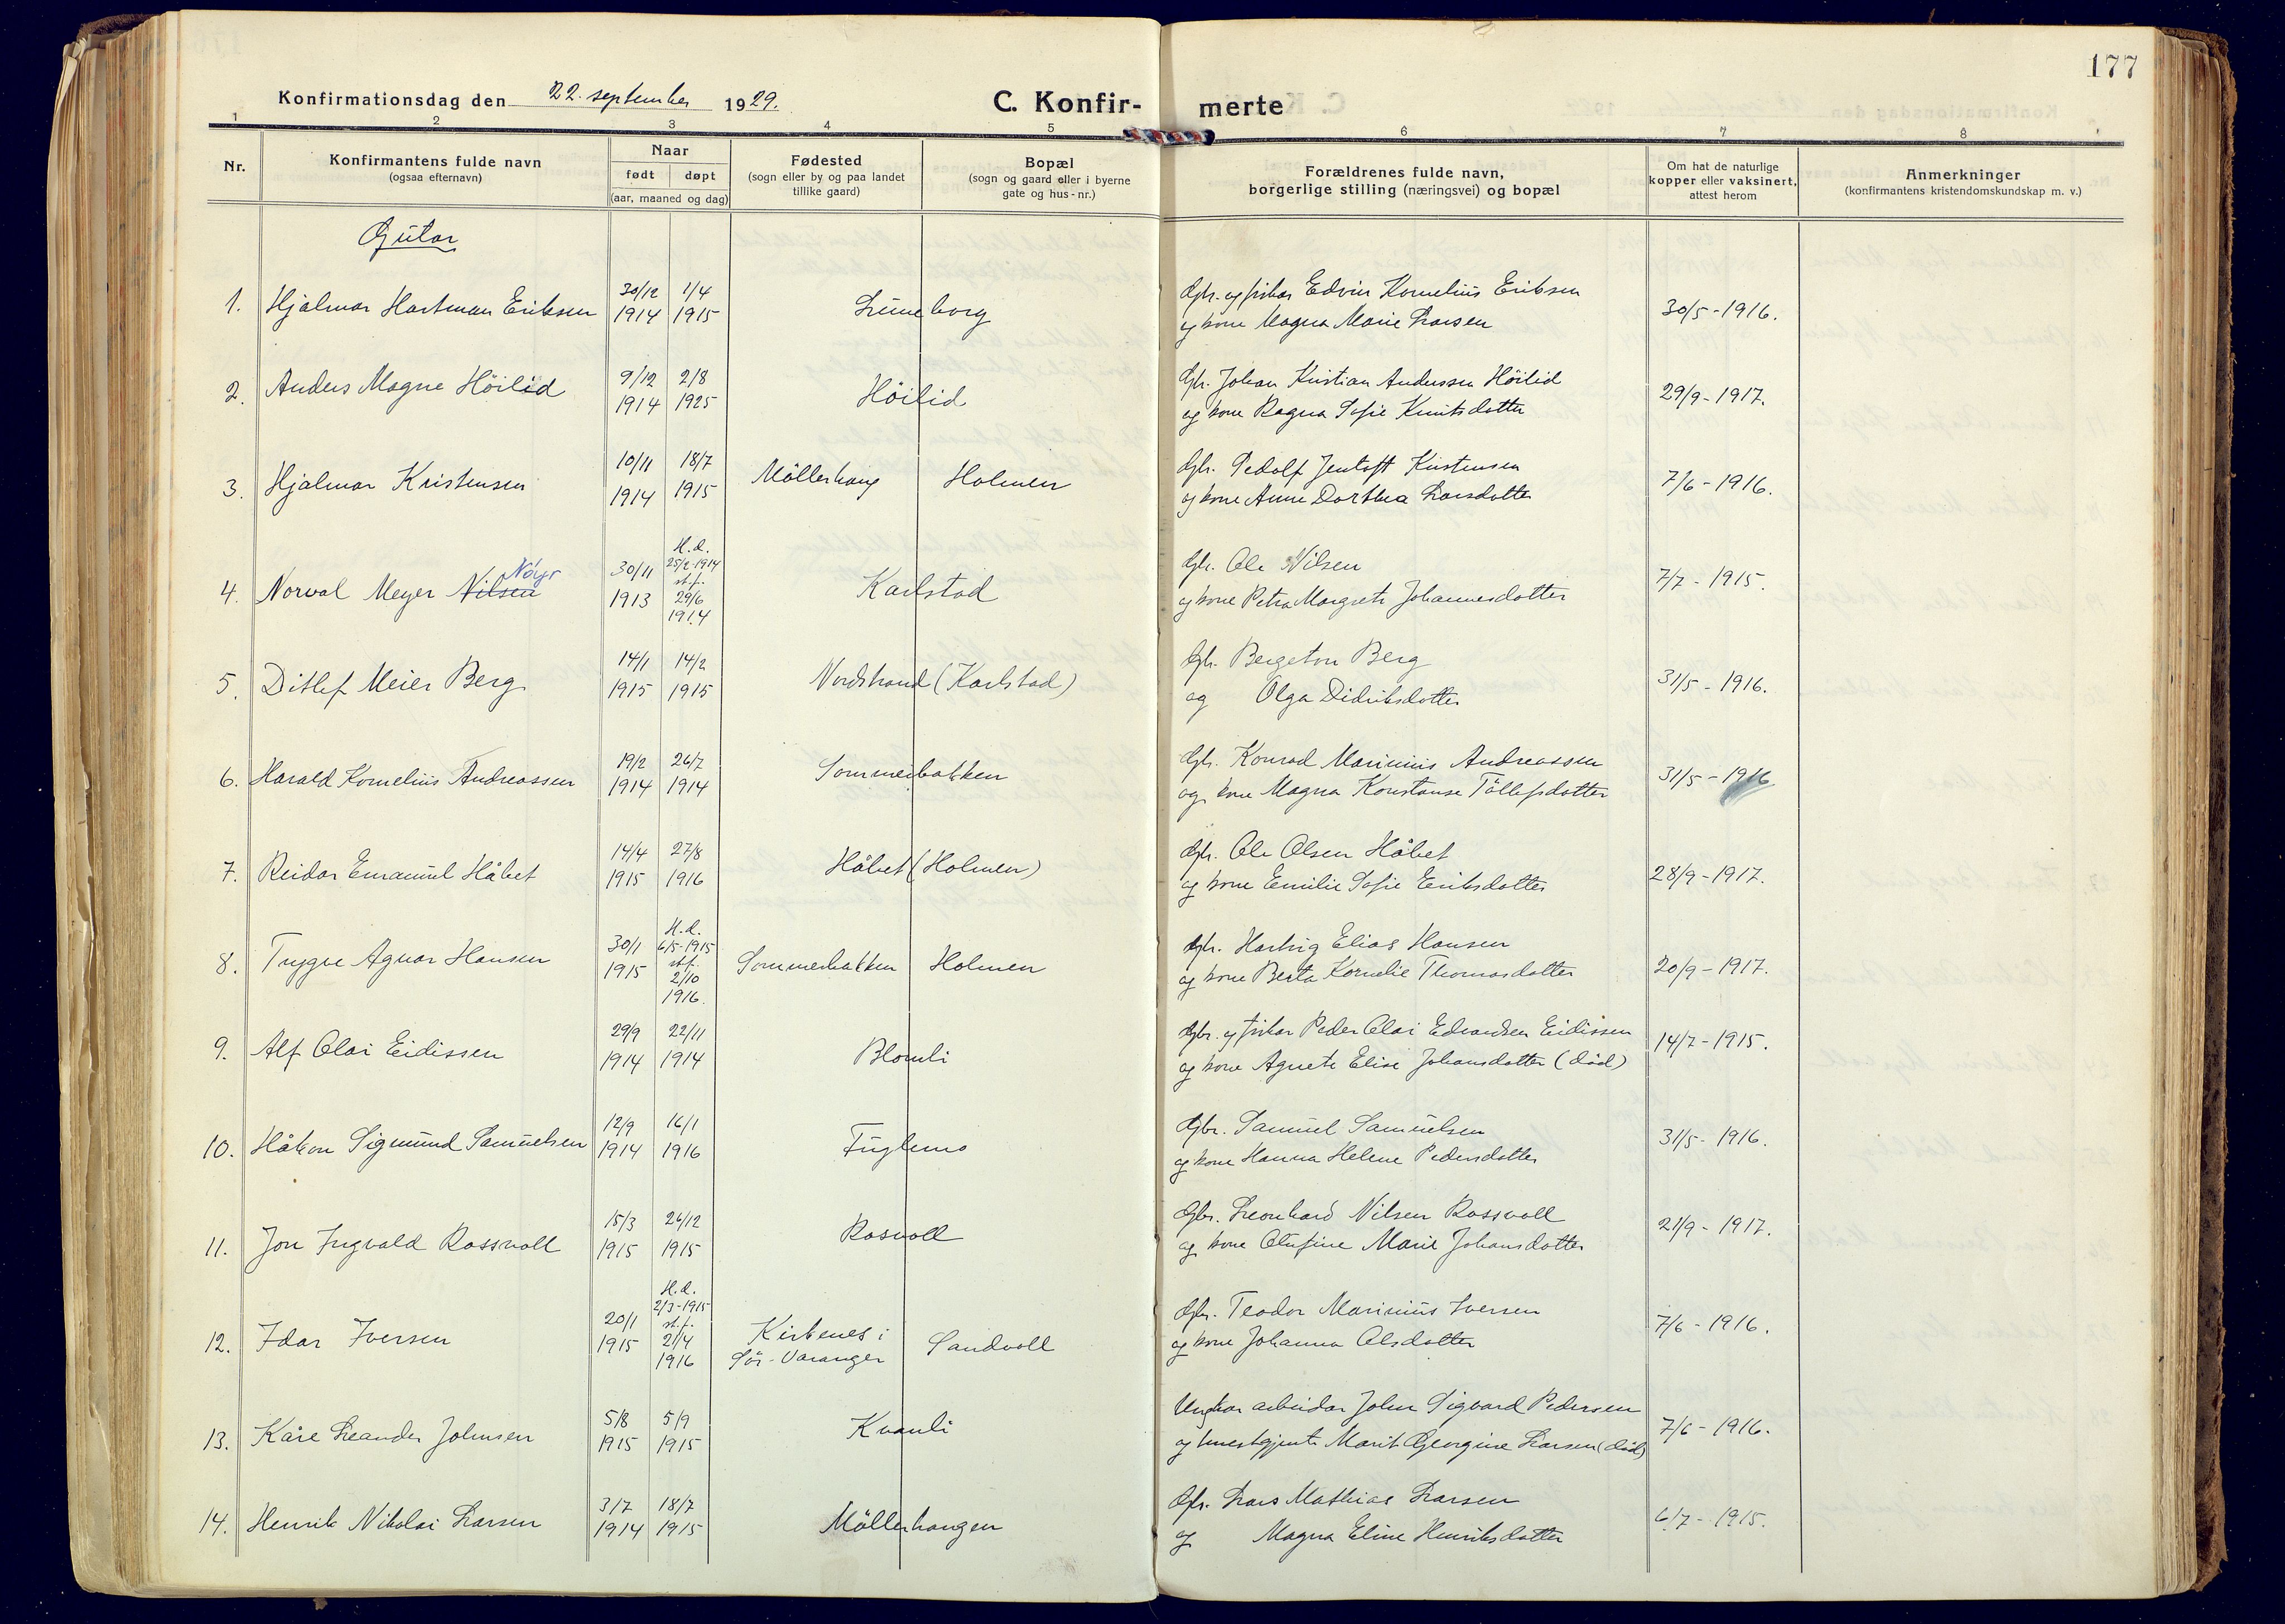 177
Konfirmationsdag den 22. september 1929.
C. Konfirmerte
1 2 3 4 5 6 7 8
Nr.
Konfirmantens fulde navn
(ogsaa efternavn)
Naar
født døpt
(aar, maaned og dag)
Fødested
(sogn eller by og paa landet
tillike gaard)
Bopæl
(sogn og gaard eller i byerne
gate og hus-nr.)
Forældrenes fulde navn,
borgerlige stilling (næringsvei) og bopæl
Om hat de naturlige
kopper eller vaksinert,
attest herom
Anmerkninger
(konfirmantens kristendomskundskap m. v.)
Gutar
1. Hjalmar Hartman Eriksen 30/12 1914 1/4 1915 Luneborg Gbr. og fiskar Edvin Kornelius Eriksen
og kone Magna Marie Larsen 30/5-1916.
2. Anders Magne Höilid 9/12 1914 2/8 1925 Höilid Gbr. Johan Kristian Anderssen Höilid
og kone Ragna Sofie Knutsdotter 29/9-1917.
3. Hjalmar Kristensen 10/11 1914 18/7 1915 Möllerhaug Holmen Gbr. Pedolf Jentoft Kristensen
og kone Anne Dorthea Larsdotter 7/6-1916.
4. Norval Meyer Nilsen Nöyr 30/11 1913 H.d. 25/2-1914 st.f. 29/6 1914 Karlstad Gbr. Ole Nilsen
og kone Petra Margrete Johannesdotter 7/7-1915.
5. Ditlef Meier Berg 14/1 1915 14/2 1915 Nordstrand (Karlstad) Gbr. Bergeton Berg
og Olga Didriksdotter 31/5-1916.
6. Harald Kornelius Andreassen 19/2 1914 26/7 1914 Sommerbakken Gbr. Konrad Marinius Andreassen
og kone Magna Konstanse Töllefsdotter 31/5-1916
7. Reidar Emanuel Håbet 14/4 1915 27/8 1916 Håbet (Holmen) Gbr. Ole Olsen Håbet
og kone Emilie Sofie Eriksdotter 28/9-1917.
8. Trygve Agnar Hansen 30/1 1915 H.d. 6/5-1915 st.f. 2/10 1916. Sommerbakken Holmen Gbr. Hartvig Elias Hansen
og kone Berta Kornelie Thomasdotter 20/9-1917.
9. Alf Olai Eidissen 29/9 1914 22/11 1914 Blomli Gbr. og fiskar Peder Olai Edvardsen Eidissen
og kone Agnete Elise Johansdotter (död) 14/7-1915.
10. Håkon Sigmund Samuelsen 12/9 1914 16/1 1916 Fuglemo Gbr. Samuel Samuelsen
og kone Hanna Helene Pedersdotter 31/5-1916.
11. Jon Ingvald Rossvoll 15/3 1915 26/12 1915 Rosvoll Gbr. Leonhard Nilsen Rossvoll
og kone Olufine Marie Johansdotter 21/9-1917.
12. Idar Iversen 20/1 1915 H.d. 2/3-1915 st.f. 2/4 1916 Kirkenes i
Sör-Varanger Sandvoll Gbr. Teodor Marinius Iversen
og kone Johanna Olsdotter 7/6-1916.
13. Kåre Leander Johnsen 5/8 1915 5/9 1915 Kvanli Ungkar arbeidar John Sigvard Pedersen
og tenestgjente Marit Georgine Larsen (död) 7/6-1916.
14. Henrik Nikolai Larsen 3/7 1914 18/7 1915 Möllerhaugen Gbr. Lars Mathias Larsen
og Magna Eline Henriksdotter 6/7-1915.